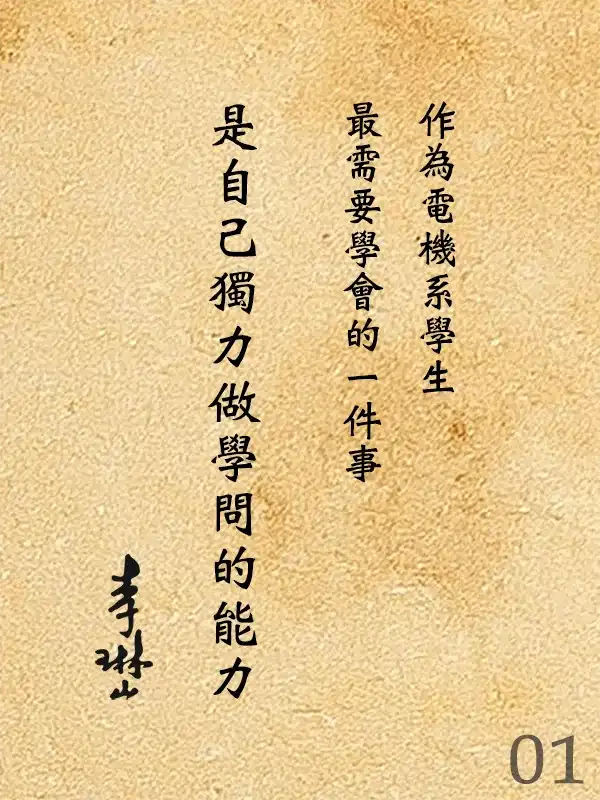 作為電機系學生
最需要學會的一件事
是自己獨力做學問的能力
李琳山
01